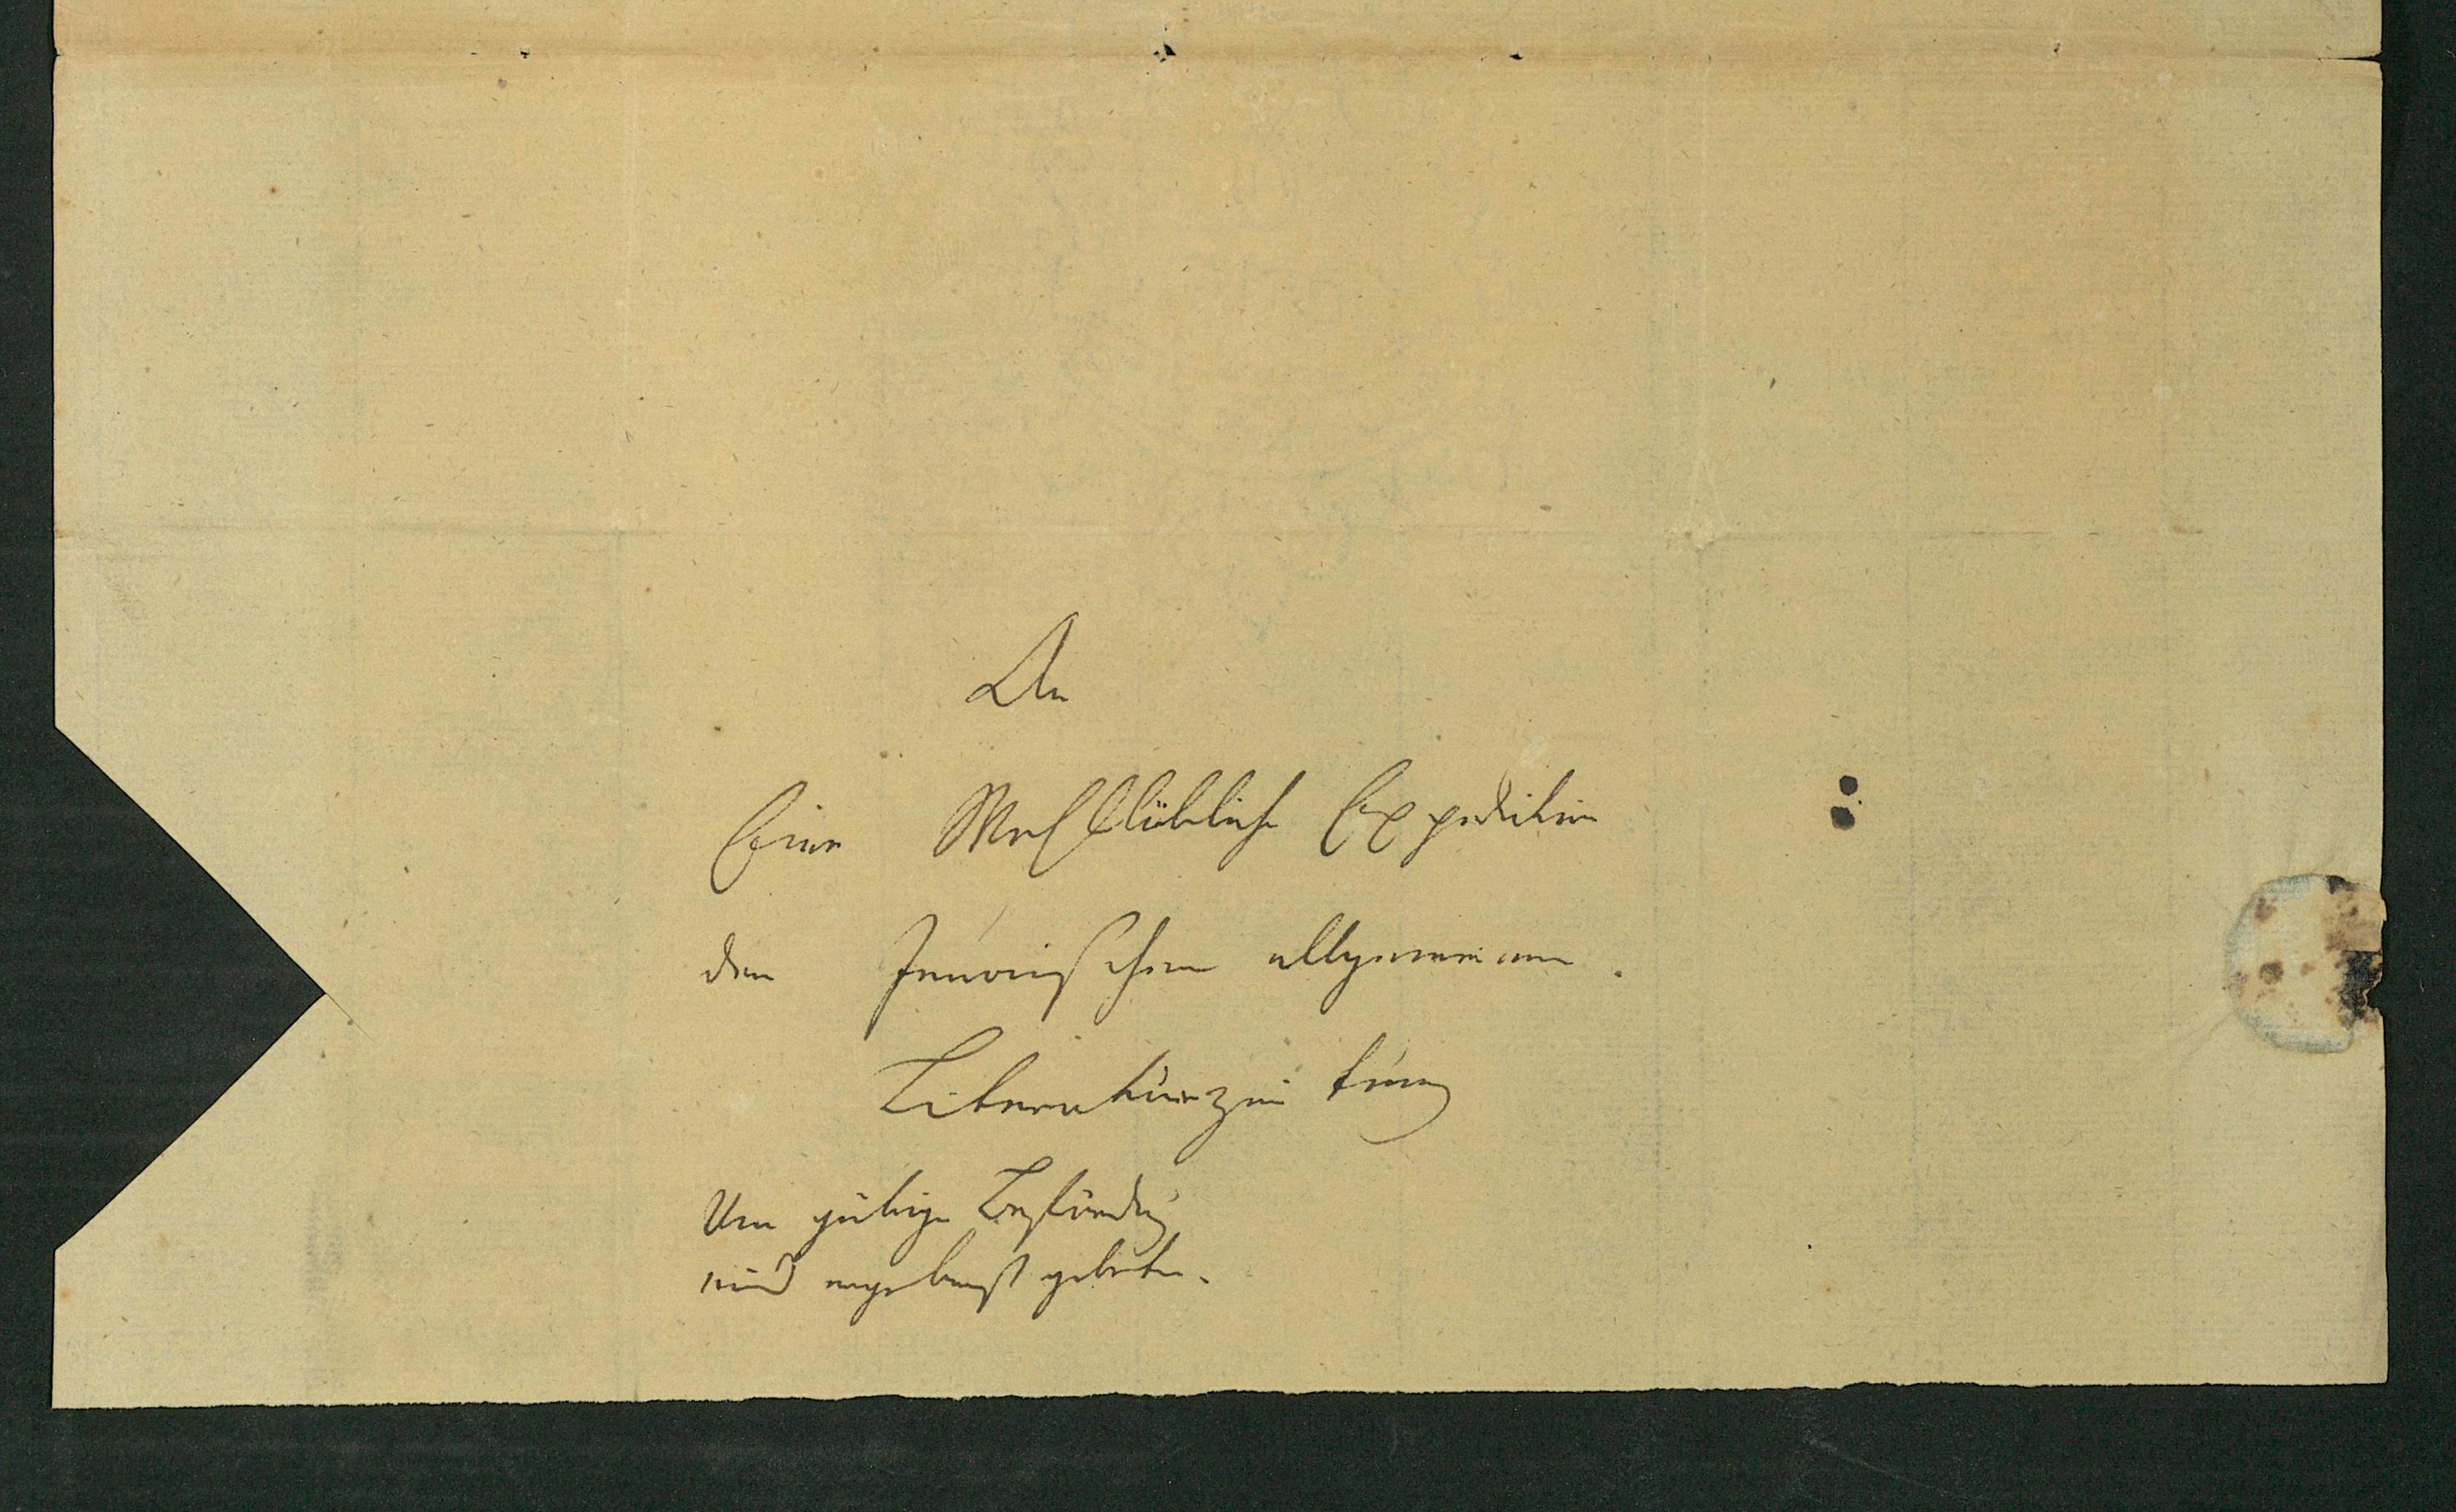 An
Eine Wohllöbliche Expedition
der Jenaischen allgemeinen
Literaturzeitung
Um gütige
wird ergebenst gebeten.